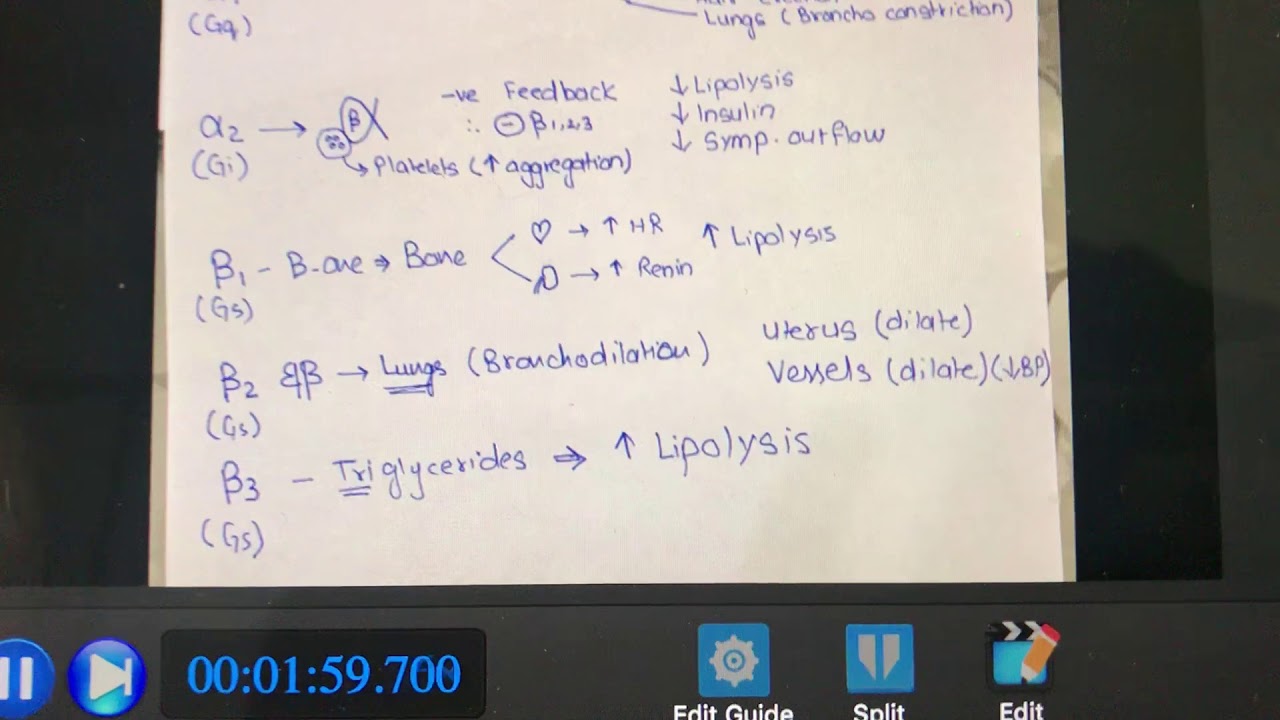 Lungs (Broncho constriction)
(Gq)
α2 → β
-ve Feedback
↓ Lipolysis
∴ ⊖ β1,2,3
↓ Insulin
(Gi)
Platelets (↑ aggregation)
↓ Symp. outflow
β1 - B-one ⇒ Bone
→ ↑ HR
↑ Lipolysis
→ ↑ Renin
(Gs)
β2 → Lungs (Bronchodilation)
Uterus (dilate)
Vessels (dilate) (↓BP)
(Gs)
β3 - Triglycerides ⇒ ↑ Lipolysis
(Gs)
00:01:59.700
Edit Guide
Split
Edit